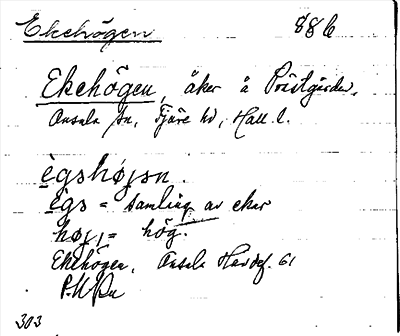 Ekehögen 886
Ekehögen, åker å Prästgården,
Onsala sn, Fjäre hd, Hall. l.
ègshøjsn.
ègs = samling av ekar
højj = hög.
Ekehögen, Onsala
303